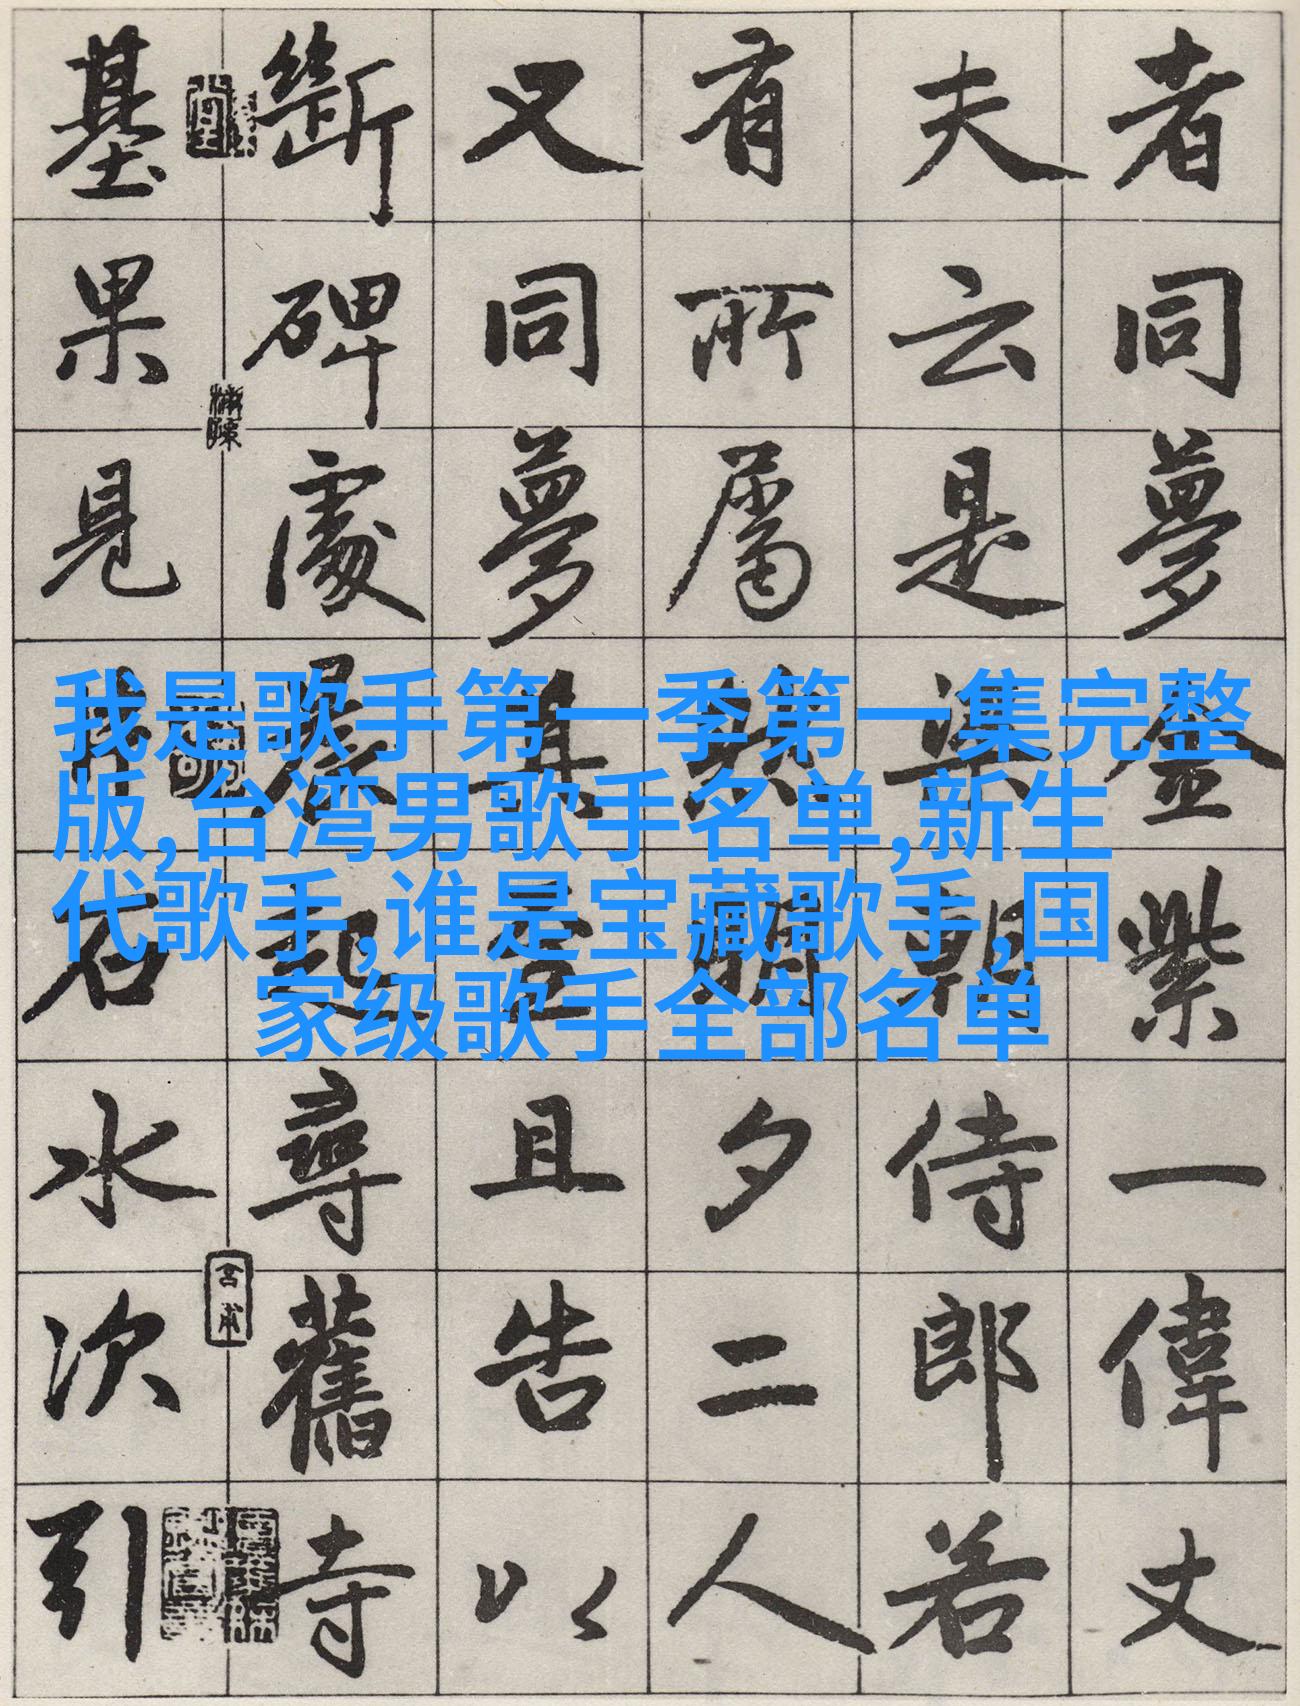 者同夢金紫一偉丈
夫云是梁朝侍郎若
有所屬明夕二人
又同夢其言且告以
斷碑處起尋舊寺
基果見石水次引
我是歌手第一季第一集完整
版,台湾男歌手名单,新生
代歌手,谁是宝藏歌手,国
家级歌手全部名单